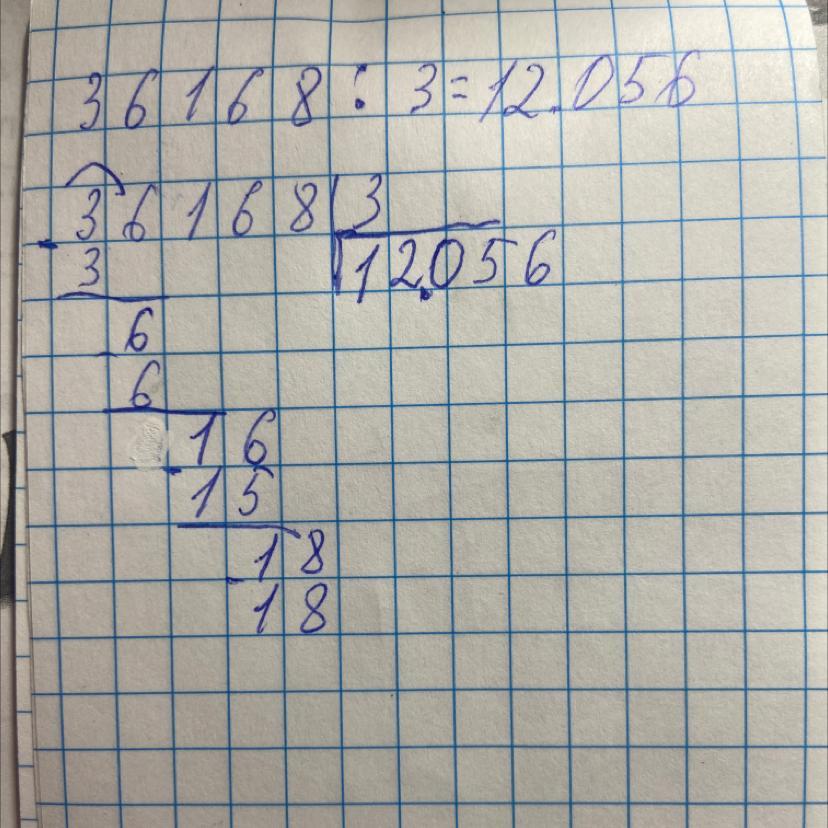 36168 : 3 = 12.056
- 36168 | 3
3 12.056
- 6
6
- 16
15
- 18
18